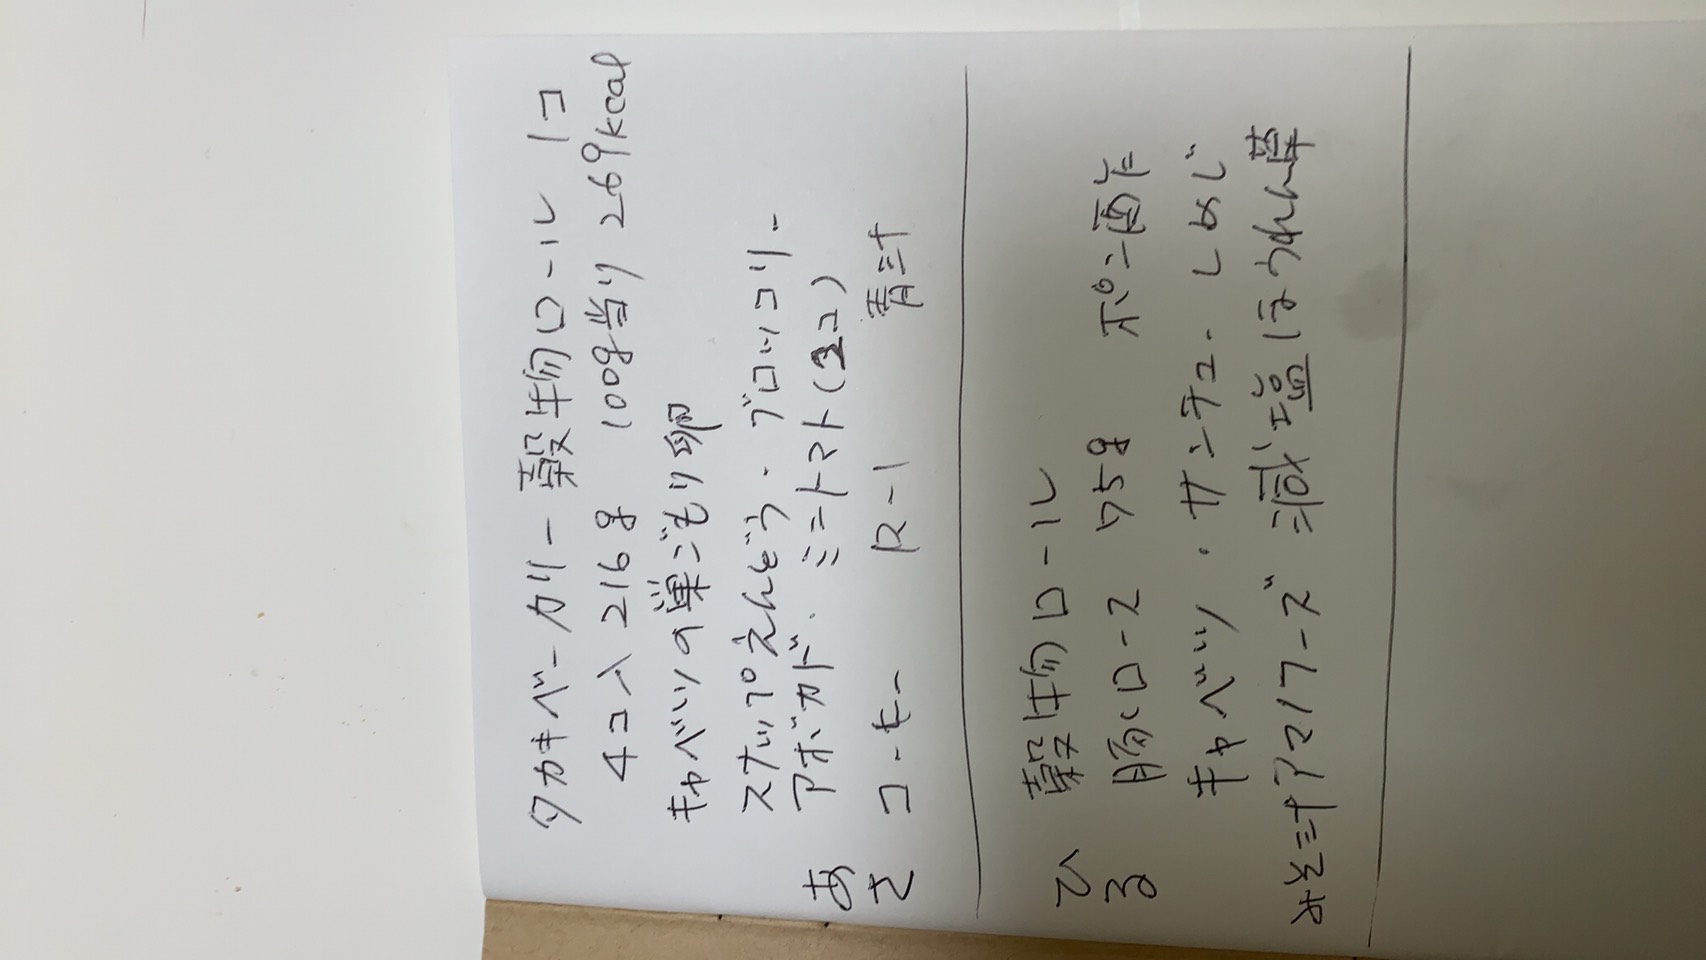 タカキベーカリー 穀物ロール 1コ
4コ入 216g 100g当り 269kcal
キャベツの巣ごもり卵
スナップえんどう・ブロッコリー
アボカド・ミニトマト(3コ)
あさ コーヒー R-1 青汁
ひる 穀物ロール
豚ロース 75g ポン酢
キャベツ・サンチュ・しめじ
みそ汁アマノフーズ 減塩ほうれん草